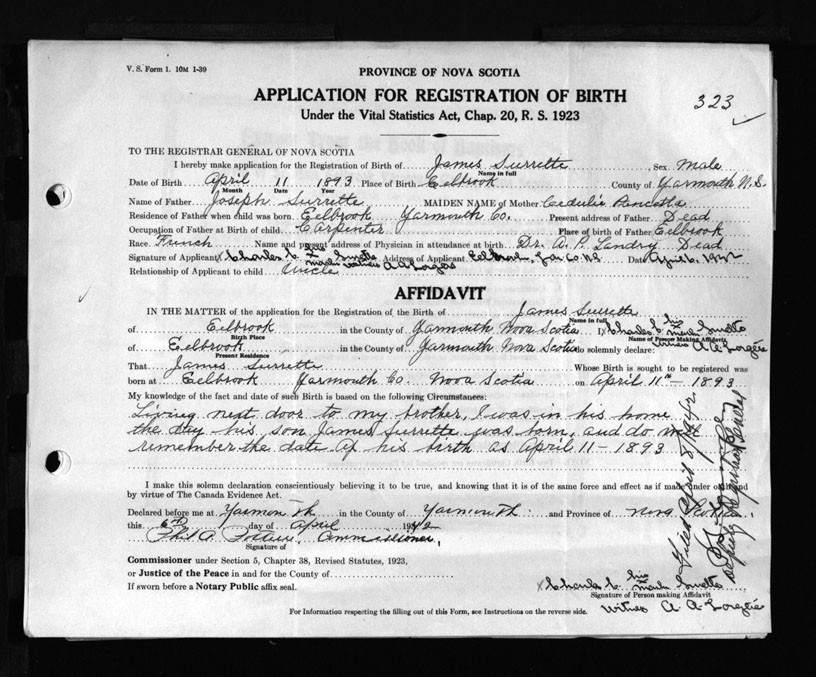 V. S. Form 1. 10M 1-39
PROVINCE OF NOVA SCOTIA
APPLICATION FOR REGISTRATION OF BIRTH
323
Under the Vital Statistics Act, Chap. 20, R. S. 1923
TO THE REGISTRAR GENERAL OF NOVA SCOTIA
I hereby make application for the Registration of Birth of James Surrette Sex Male
Name in full
Date of Birth April 11 1893 Place of Birth Eelbrook County of Yarmouth N.S.
Month Date Year
Name of Father Joseph Surrette MAIDEN NAME of Mother
Residence of Father when child was born. Eelbrook Yarmouth Co. Present address of Father Dead
Occupation of Father at Birth of child Carpenter Place of birth of Father Eelbrook
Race. French Name and present address of Physician in attendance at birth. Dr. A. P. Landry Dead
Signature of Applicant x Charles C. his x mark Surette witness A A Address of Applicant Eelbrook, Yar Co N.S. Date April 6, 1942
Relationship of Applicant to child Uncle
AFFIDAVIT
IN THE MATTER of the application for the Registration of the Birth of James Surrette
Name in full
of Eelbrook in the County of Yarmouth Nova Scotia I, x Charles C. his x mark Surette
Birth Place Name of Person Making Affidavit
of Eelbrook in the County of Yarmouth Nova Scotia do solemnly declare: witness A A
Present Residence
That James Surrette Whose Birth is sought to be registered was
born at Eelbrook Yarmouth Co. Nova Scotia on April 11th - 1893
My knowledge of the fact and date of such Birth is based on the following Circumstances:
Living next door to my brother, I was in his home
the day his son James Surrette was born, and do
remember the date of his birth as April 11 - 1893.
I make this solemn declaration conscientiously believing it to be true, and knowing that it is of the same force and effect as if made under oath and
by virtue of The Canada Evidence Act.
Declared before me at Yarmouth in the County of Yarmouth and Province of Nova Scotia
this 6th day of April 1942
Phil A. Commissioner,
Signature of
Commissioner under Section 5, Chapter 38, Revised Statutes, 1923,
or Justice of the Peace in and for the County of
If sworn before a Notary Public affix seal.
x Charles C. his x mark Surette
Signature of Person making Affidavit
witness A A
For Information respecting the filling out of this Form, see Instructions on the reverse side.
Filed April 8th 1942
Deputy Registrar General